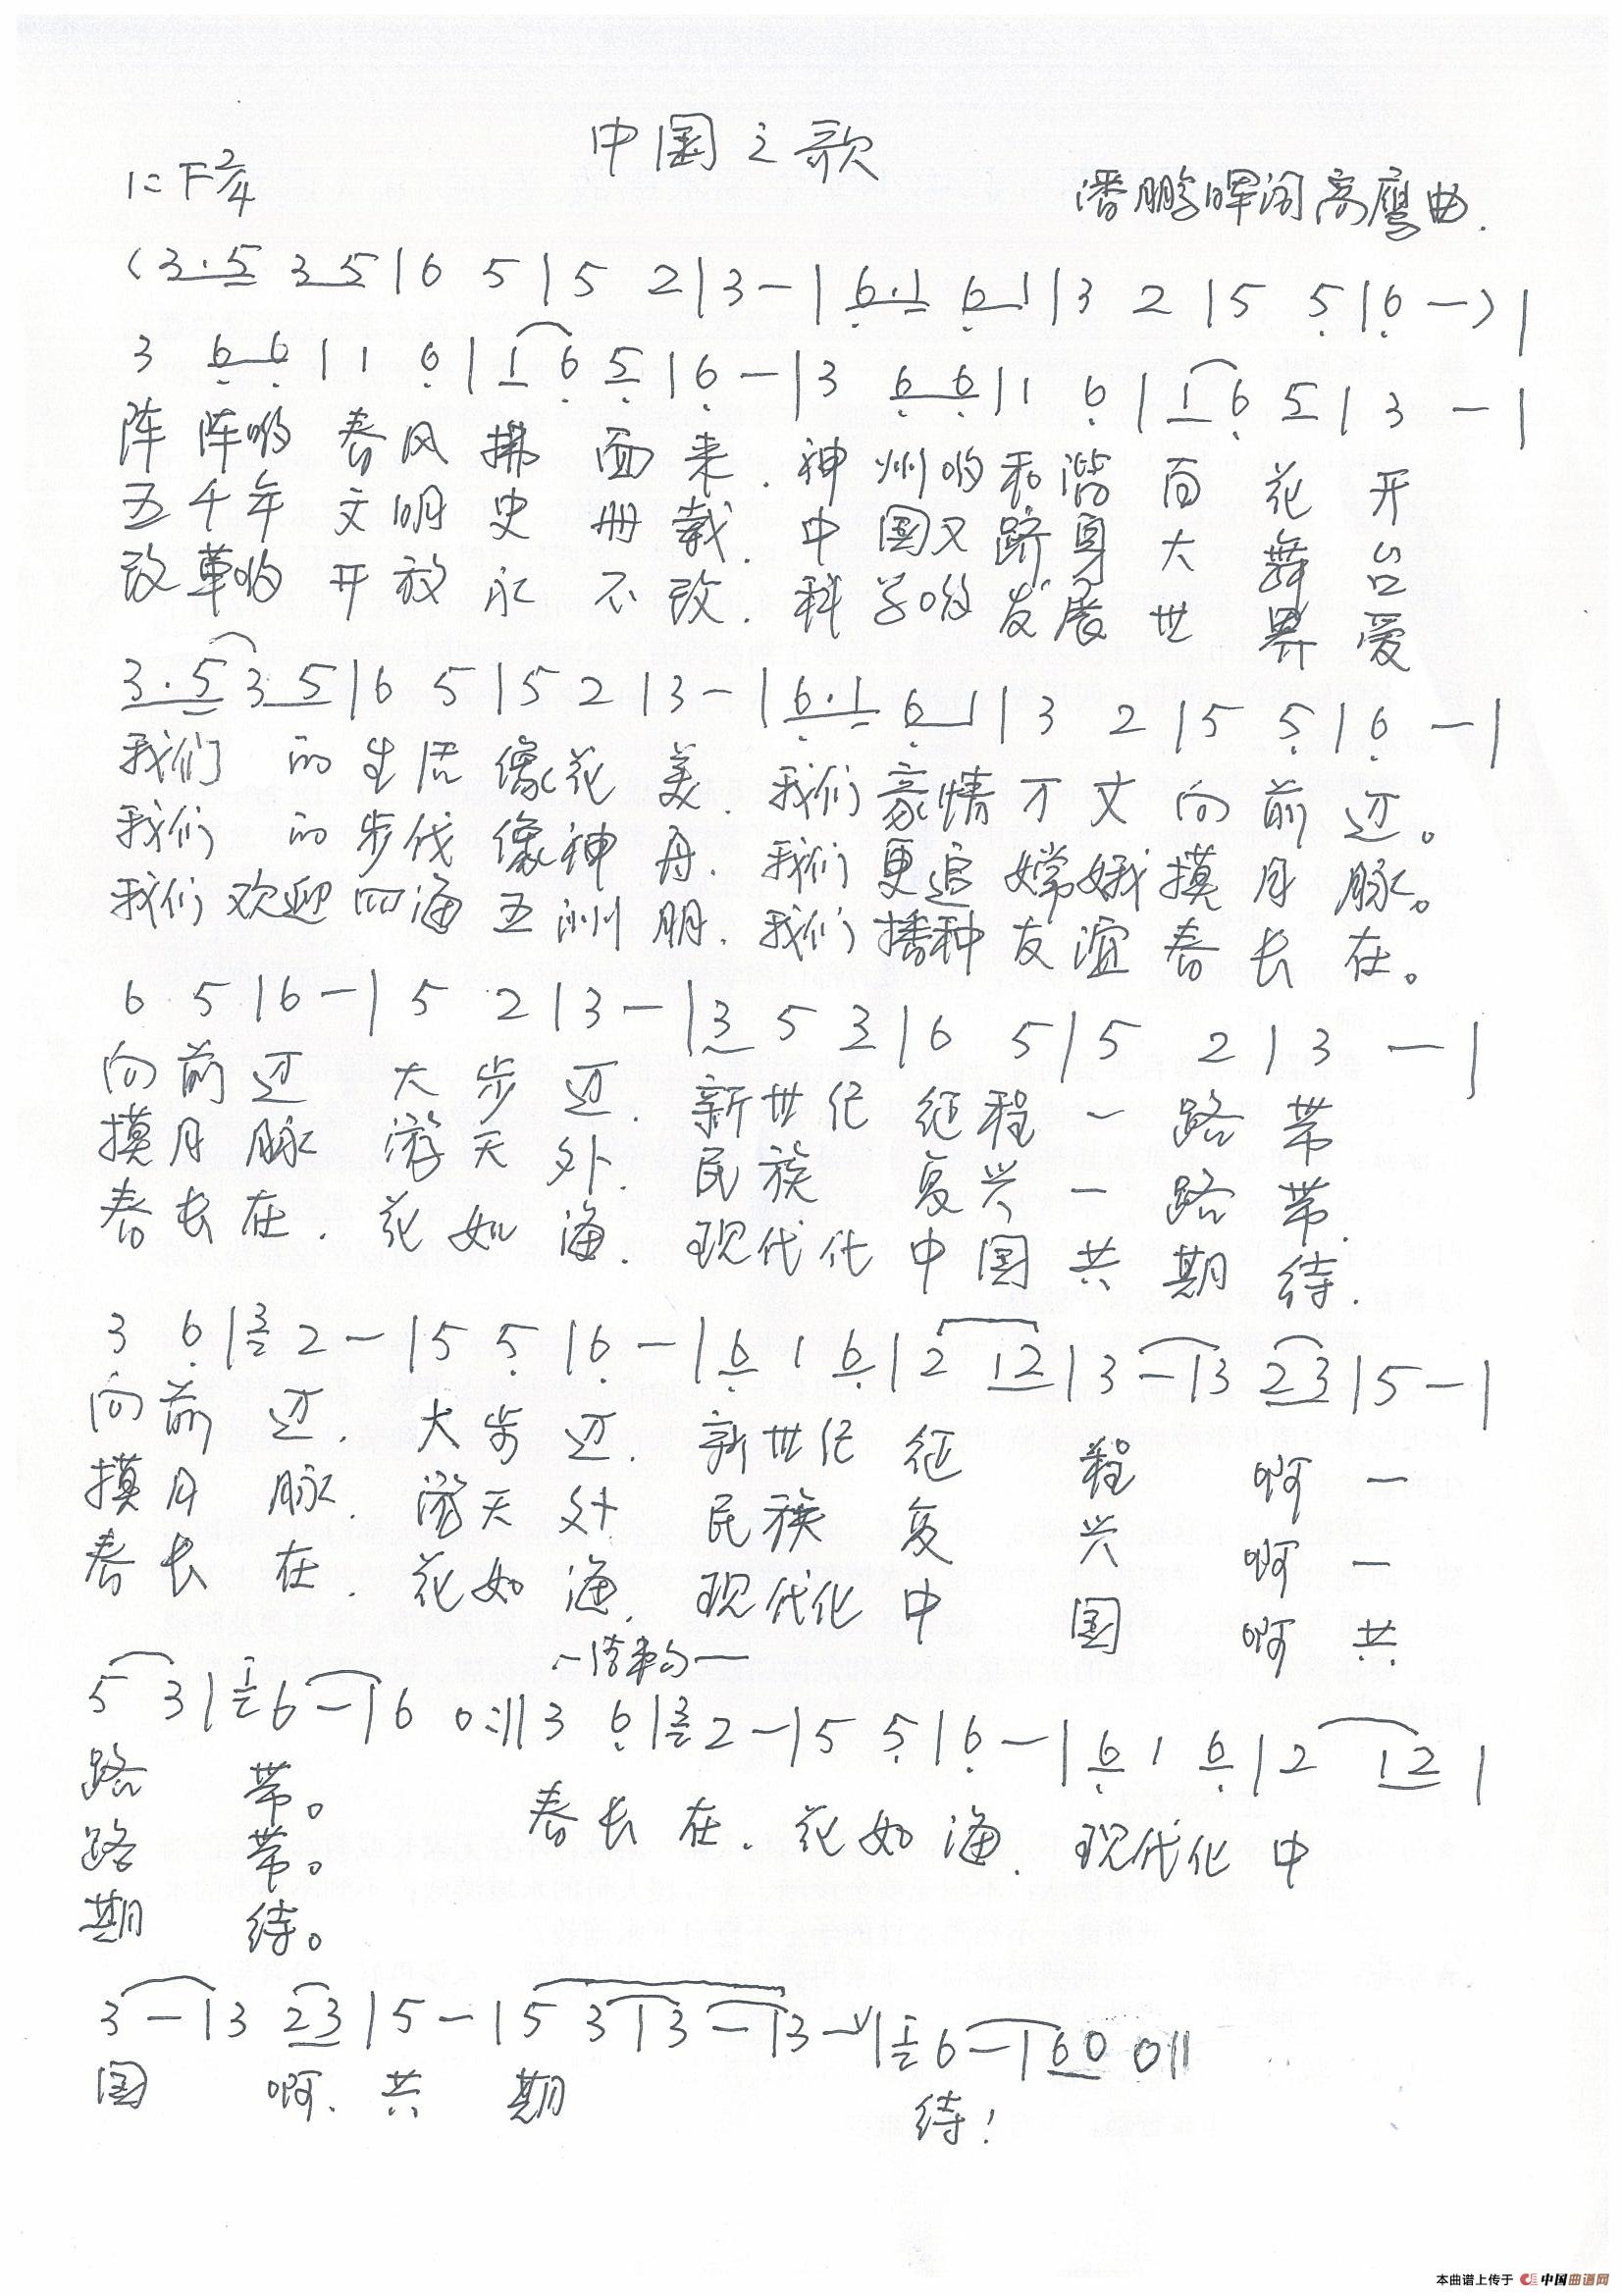 中国之歌
1=F 2/4
潘鹏晖词 高鹰曲.
(3.5 3 5 | 6 5 | 5 2 | 3 - | 6.1 6 1 | 3 2 | 5 5 | 6 - ) |
3 6 6 | 1 6 | 1 6 5 | 6 - | 3 6 6 | 1 6 | 1 6 5 | 3 - |
阵 阵哟 春风 拂 面 来. 神 州哟 和谐 百 花 开
五 千年 文明 史 册 载. 中 国又 跻身 大 舞 台
改 革哟 开放 永 不 改. 科 学哟 发展 世 界 爱
3.5 3 5 | 6 5 | 5 2 | 3 - | 6.1 6 1 | 3 2 | 5 5 | 6 - |
我们 的 生活 像花 美. 我们 豪情 万丈 向前 迈。
我们 的 步伐 像神 舟. 我们 更追 嫦娥 摸月 脉。
我们 欢迎 四海 五洲 朋. 我们 播种 友谊 春长 在。
6 5 | 6 - | 5 2 | 3 - | 3 5 3 | 6 5 | 5 2 | 3 - |
向前 迈 大步 迈. 新世纪 征程 一 路 带
摸月 脉 游天 外. 民族 复兴 一 路 带.
春长 在. 花如 海. 现代化 中国 共 期 待.
3 6 | 3 2 - | 5 5 | 6 - | 6 1 6 | 2 1 2 | 3 - | 3 2 3 | 5 - |
向前 迈. 大步 迈. 新世纪 征 程 啊 一
摸月 脉. 游天 外 民族 复 兴 啊 一
春长 在. 花如 海. 现代化 中 国 啊 共
5 3 | i 6 - | 6 0 :|| 3 6 | 3 2 - | 5 5 | 6 - | 6 1 6 | 2 1 2 |
路 带。 春长 在. 花如 海. 现代化 中
路 带。
期 待。
3 - | 3 2 3 | 5 - | 5 3 | 3 - | 3 - | i 6 - | 6 0 0 ||
国 啊. 共 期 待!
本曲谱上传于 中国曲谱网